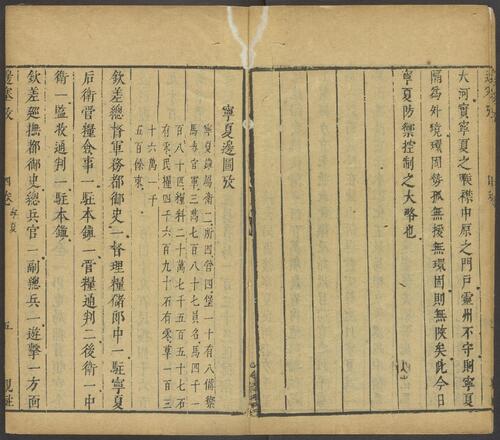 大河實寧夏之襟中原之門戶靈州不守則寧夏
隔為外境環固勢孤無援無環固則無陝矣此今日
寧夏防禦控制之大略也
寧夏邊圖攷
寧夏鎮 衛二所四營四堡一十有八備禦
馬步官軍三萬七百八十七員名馬四千一
百八十四匹糧料二十萬七千五百五十七石
有零民糧四千六百九十石有零草一百三
十六萬一千
五百餘束
欽差總督軍務都御史一督理糧儲郎中一駐寧夏
后衛管糧僉事一駐本鎮一管糧通判二後衛一中
衛一監收通判一駐本鎮
欽差廵撫都御史總兵官一副總兵一遊擊一方面
邊塞攷 四 寧夏 五